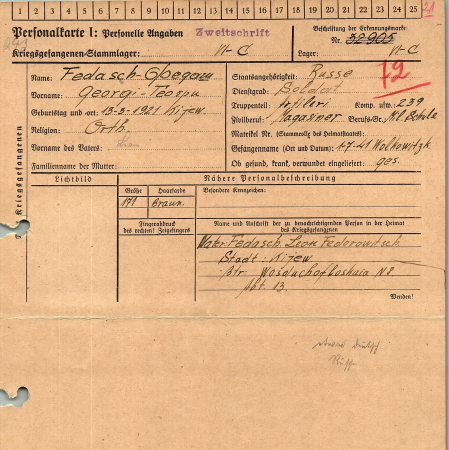 1 2 3 4 5 6 7 8 9 10 11 12 13 14 15 16 17 18 19 20 21 22 23 24 25
Personalkarte I: Personelle Angaben
Zweitschrift
Beschriftung der Erkennungsmarke
Nr. 32905
Kriegsgefangenen-Stammlager: VI-C
Lager: VI-C
72
Name: Fedasch-
Vorname: Georgi-
Geburtstag und -ort: 13-3-1921 Kijew.
Religion: Orth.
Vorname des Vaters:
Familienname der Mutter:
Staatsangehörigkeit: Russe
Dienstgrad: Soldat
Truppenteil: Komp. usw. 239
Zivilberuf: Berufs-Gr.
Matrikel Nr. (Stammrolle des Heimatstaates)
Gefangennahme (Ort und Datum): 1-7-41 Wolkowitzk
Ob gesund, krank, verwundet eingeliefert: ges.
des Kriegsgefangenen
Lichtbild
Nähere Personalbeschreibung
Größe
Haarfarbe
Besondere Kennzeichen:
171
Braun.
Fingerabdruck
des rechten! Zeigefingers
Name und Anschrift der zu benachrichtigenden Person in der Heimat
des Kriegsgefangenen
Vater: Fedasch Leon Federowitsch
Stadt: Kijew.
Str. N8.
13.
Wenden!
etwas deutsch